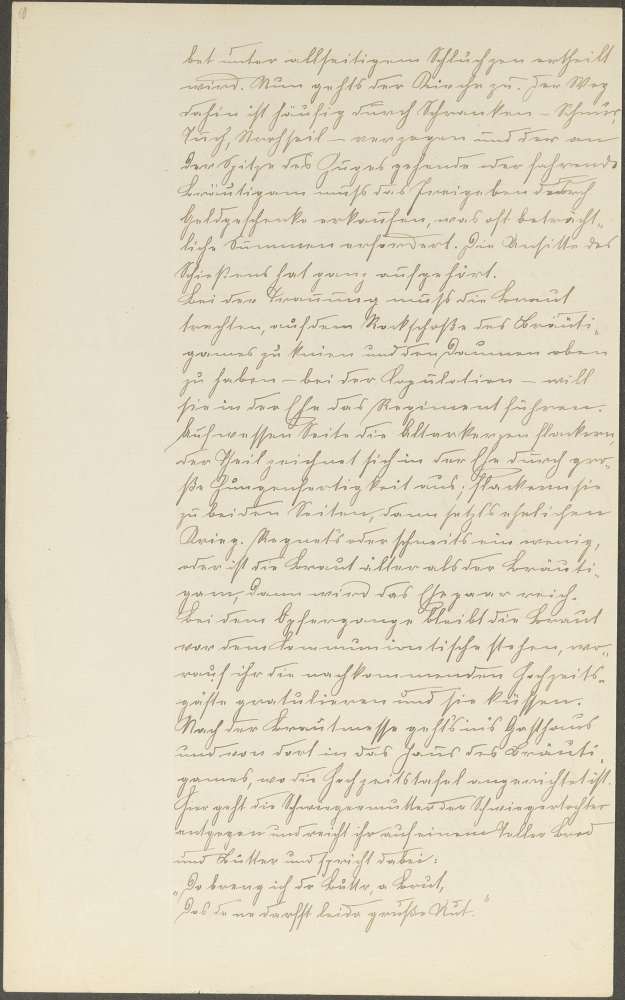 bet unter allseitigem Schluchzen ertheilt
wird. Nun gehts der Kirche zu. Der Weg
dahin ist häufig durch Schranken – Schnur,
Tuch, Strohseil – verzogen und der an
der Spitze des Zuges gehende oder fahrende
Bräutigam muß das Freigeben durch
Geldgeschenke erkaufen, was oft beträcht-
liche Summen erfordert. Die Unsitte des
Schießens hat ganz aufgehört.
Bei der Trauung muß die Braut
trachten, auf dem Rockschoße des Bräuti-
games zu knien und den Daumen oben
zu haben – bei der Copulation – will
sie in der Ehe das Regiment führen.
Auf wessen Seite die Altarkerzen flackern,
der Theil zeichnet sich in der Ehe durch gro-
ße Zungenfertigkeit aus; flackern sie
zu beiden Seiten, dann setzts ehelichen
Krieg. Regnets oder schneits ein wenig,
oder ist die Braut älter als der Bräuti-
gam, dann wird das Ehepaar reich.
Bei dem Opfergange bleibt die Braut
vor dem Communiontische stehen, wo-
rauf ihr die nachkommenden Hochzeits-
gäste gratulieren und sie küssen.
Nach der Brautmesse gehts ins Gasthaus
und von dort in das Haus des Bräuti-
games, wo die Hochzeitstafel angerichtet ist.
Hier geht die Schwiegermutter der Schwiegertochter
entgegen und reicht ihr auf einem Teller Brod
und Butter und spricht dabei:
„Do breng ich dr Butte, a Brut,
Das de ne darfst leida gruße Nut."